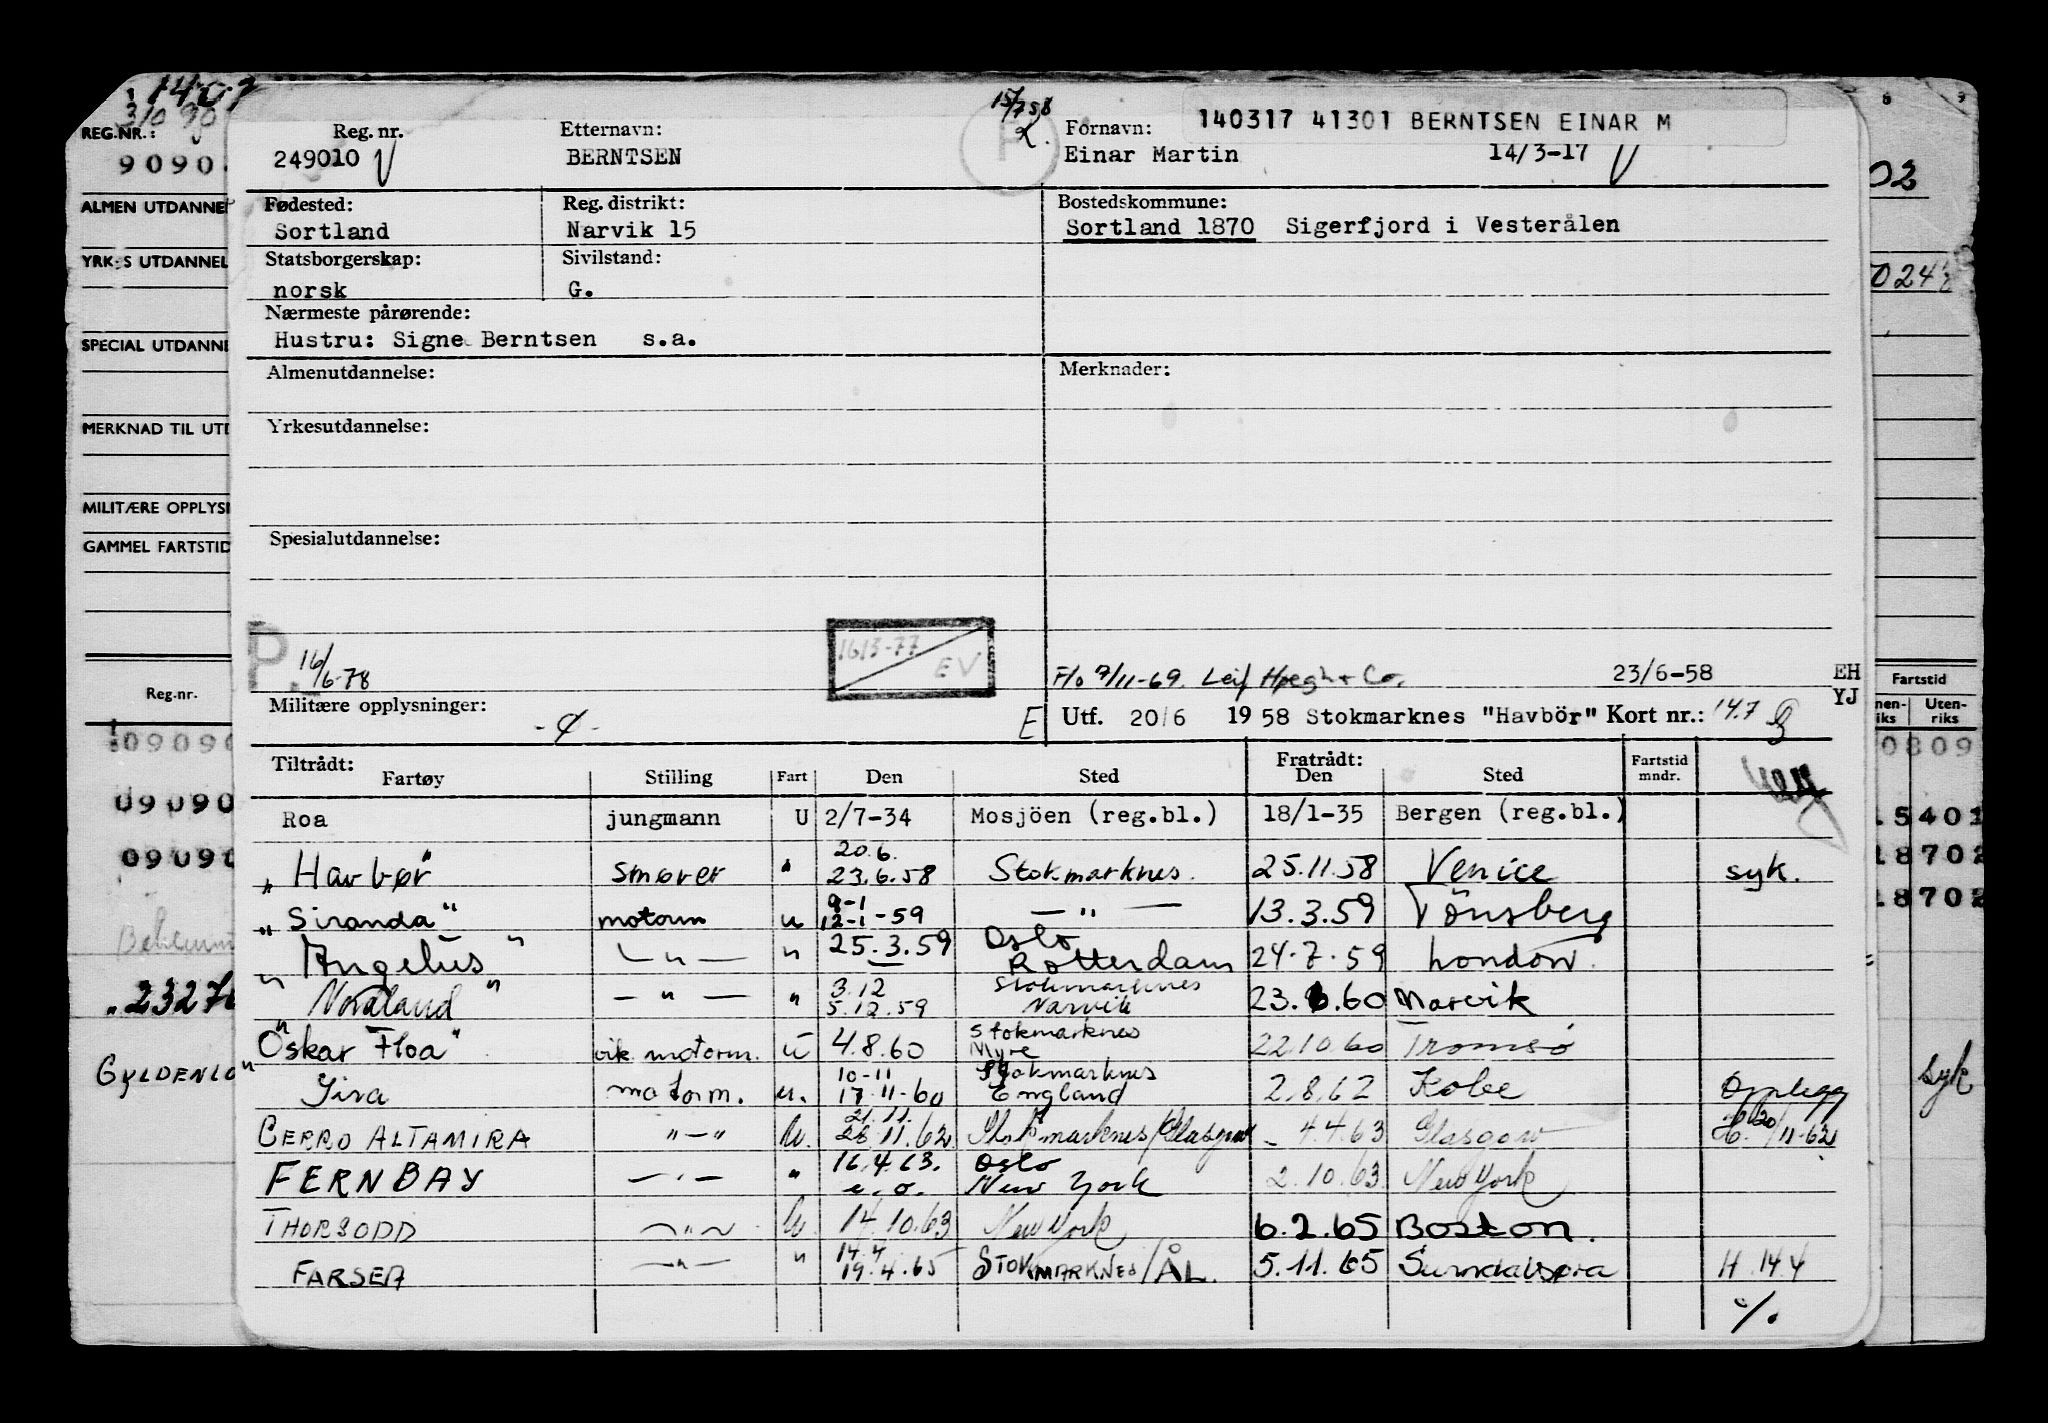 140317 41301 BERNTSEN EINAR M
REG.NR.: Reg. nr. Etternavn: Fornavn:
9090 249010 BERNTSEN Einar Martin 14/3-17
ALMEN UTDANNE Fødested: Reg. distrikt: Bostedskommune:
Sortland Narvik 15 Sortland 1870 Sigerfjord i Vesterålen
YRK-S UTDANNEL Statsborgerskap: Sivilstand:
norsk G.
Nærmeste pårørende:
SPECIAL UTDANNE Hustru: Signe Berntsen s.a.
Almenutdannelse: Merknader:
MERKNAD TIL UTD Yrkesutdannelse:
MILITÆRE OPPLYS
GAMMEL FARTSTID Spesialutdannelse:
P. 16/6-78 EV F/o 7/11-69. Leif Høegh + Co. 23/6-58 EH
Reg.-nr. Militære opplysninger: E Utf. 20/6 1958 Stokmarknes "Havbör" Kort nr.: 14.7 YJ Fartstid
Uten-riks
Tiltrådt: Fratrådt:
Fartøy Stilling Fart Den Sted Den Sted Fartstid mndr.
09090 Roa jungmann U 2/7-34 Mosjöen (reg.bl.) 18/1-35 Bergen (reg.bl.) 15401
20.6.
09090 "Havbør" smører " 23.6.58 Stokmarknes. 25.11.58 Venice syk. 18702
9-1
"Siranda" motorm u 12-1-59 —"— 13.3.59 Tönsberg 18702
"Angelus" —"— " 25.3.59 Oslo Rotterdam 24.7.59 London.
3.12 Stokmarknes
"Nordland" —"— " 5.12.59 Narvik 23. .60 Narvik
23276
Stokmarknes
"Oskar Floa" vik. motorm. u 4.8.60 Myre 22.10.60 Tromsø
10-11 Stokmarknes
GYLDENLO "Jira motorm. u. 17.11-60 England 2.8.62 Kobe Opplegg syk
21.11.
CERRO ALTAMIRA "—" u. 26.11.62 Stokmarknes/Glasgow - 4.4.63 Glasgow H. 20/11-62
16.4.63. Oslo
FERNBAY —"— " e.o. New York 2.10.63 New York
THORSODD —"— u. 14.10.63 New York 6.2.65 Boston.
14.4
FARSEA —"— " 19.4.65 STOKMARKNES/ÅL. 5.11.65 Sunndalsøra H 14.4
%.